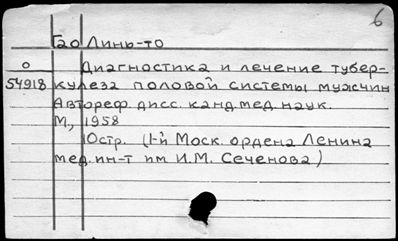 6
Гао Линь-то
О Диагностика и лечение тубер-
54918 кулеза половой системы мужчин
Автореф. дисс. канд. мед. наук.
М., 1958
10стр. (1-й Моск. ордена Ленина
мед. ин-т им И.М. Сеченова)